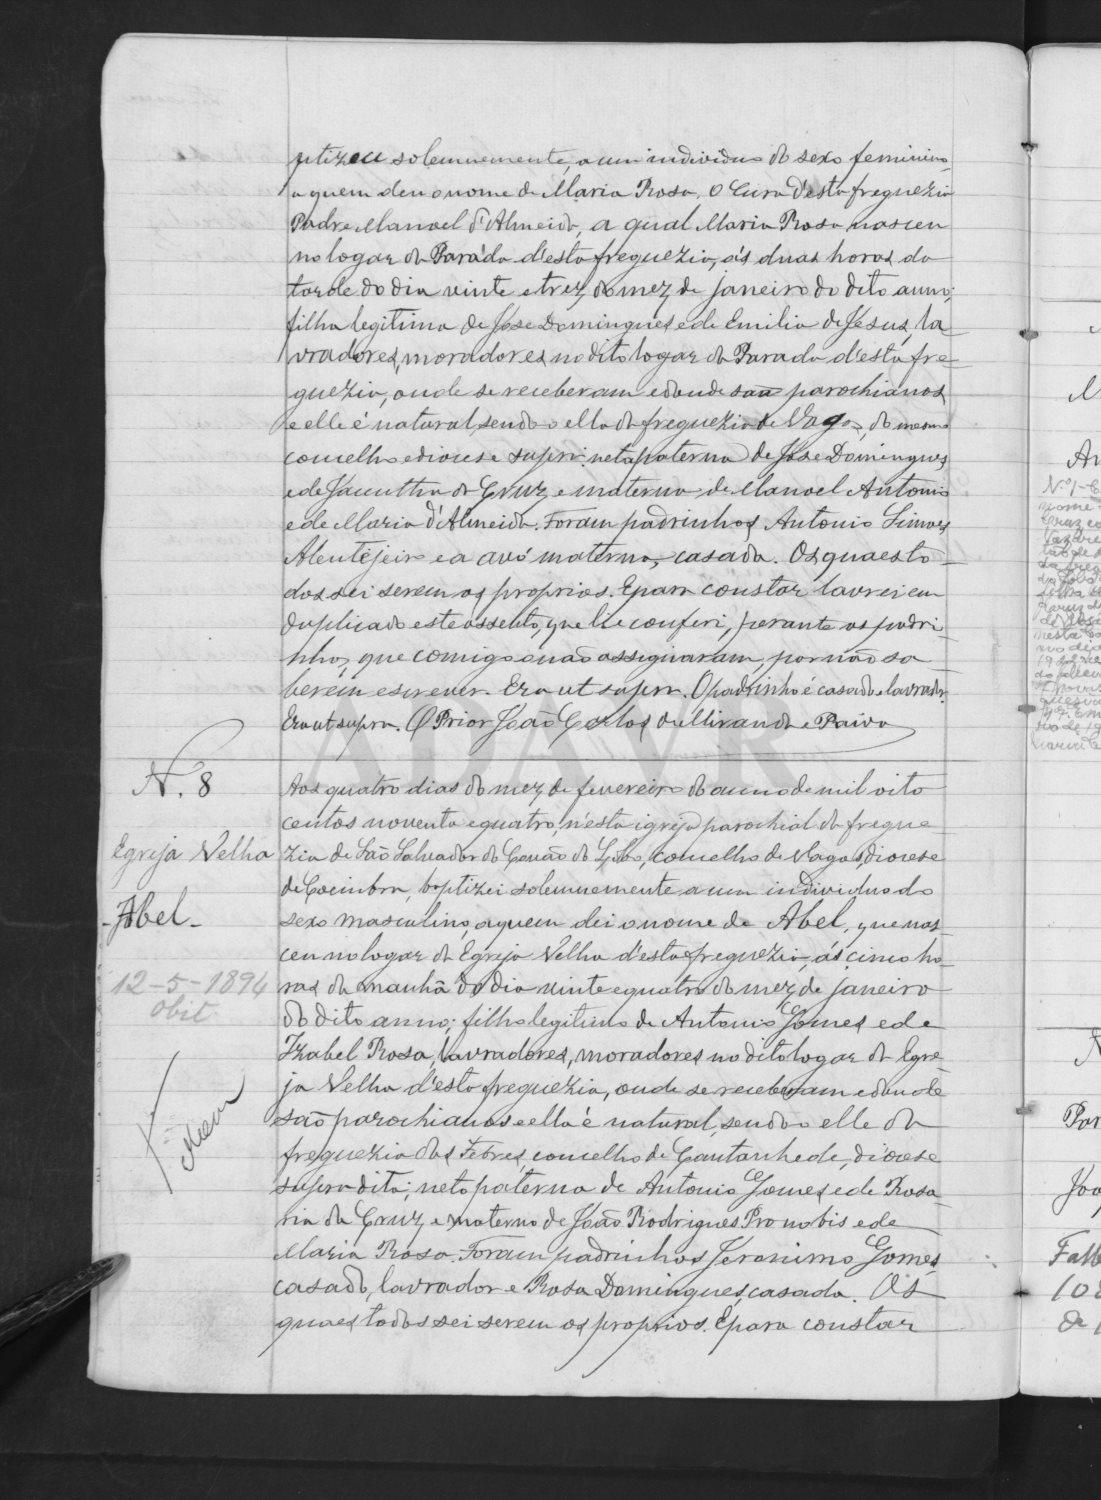 ptizou solemnemente, a um individuo do sexo feminino
a quem deu o nome de Maria Rosa, O Cura d'esta freguezia
Padre Manoel d'Almeida, a qual Maria Rosa nasceu
no logar da Paráda d'esta freguezia, ás duas horas da
tarde do dia vinte e trez do mez de janeiro do dito anno;
filha legitima de Jose Domingues e de Emilia de Jesus, la
vradores, moradores no dito logar da Parada d'esta fre-
guezia, onde se receberam e donde são parochianos
e elle é natural, sendo ella da freguezia de Vagos, do mesmo
concelho e diocese supra: neta paterna de Jose Domingues
e de Jacintha da Cruz, e materna de Manoel Antonio
e de Maria d'Almeida. Foram padrinhos Antonio Simoes
Alentejeiro e a avó materna, casada. Os quaes to-
dos sei serem os proprios. E para constar lavrei em
duplicado este assento, que li e conferi, perante os padri-
nhos, que comigo não assignaram, por não sa
berem escrever. Era ut supra. O padrinho é casado e lavrador.
Era ut supra. O Prior João Carlos de Miranda e Paiva
N. 8
Egreja Velha
-Abel-
12-5-1894
obit
Aos quatro dias do mez de fevereiro do anno de mil oito
centos noventa e quatro, n'esta igreja parochial da fregue-
zia de São Salvador do Covão do Lobo, concelho de Vagos, diocese
de Coimbra, baptizei solemnemente a um individuo do
sexo masculino, a quem dei o nome de Abel, que nas-
ceu no logar da Egreja Velha d'esta freguezia, ás cinco ho-
ras da manhã do dia vinte e quatro do mez de janeiro
do dito anno; filho legitimo de Antonio Gomes e de
Izabel Rosa, lavradores, moradores no dito logar da Egre
ja Velha d'esta freguezia, onde se receberam e donde
são parochianos e ella é natural, sendo elle da
freguezia das Febres, concelho de Cantanhede, diocese
supradita; neto paterno de Antonio Gomes e de Rosa
ria da Cruz, e materno de João Rodrigues Pronobis e de
Maria Rosa. Foram padrinhos Jeronimo Gomes,
casado, lavrador e Rosa Domingues, casada. Os
quaes todos sei serem os proprios. E para constar
ADAVR